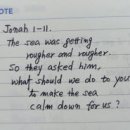 OTE
Jonah 1-11.
The sea was getting
rougher and rougher.
So they asked him,
what should we do to you
to make the sea
calm down for us?